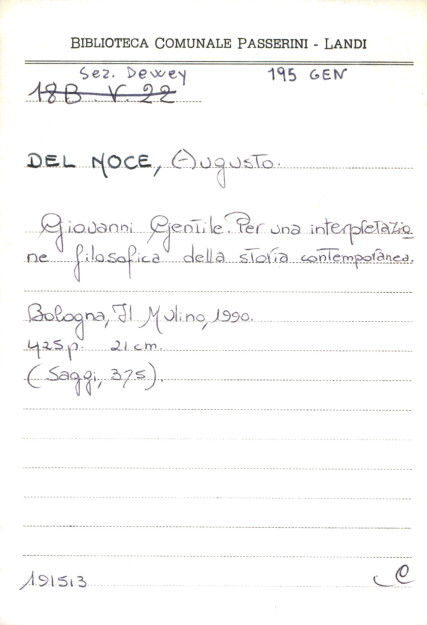 BIBLIOTECA COMUNALE PASSERINI - LANDI
Sez. Dewey 195 GEN
18B V. 22
DEL NOCE, Augusto.
Giovanni Gentile. Per una interpretazio
ne filosofica della storia contemporanea.
Bologna, Il Mulino, 1990.
425 p. 21 cm.
(Saggi, 375).
191513